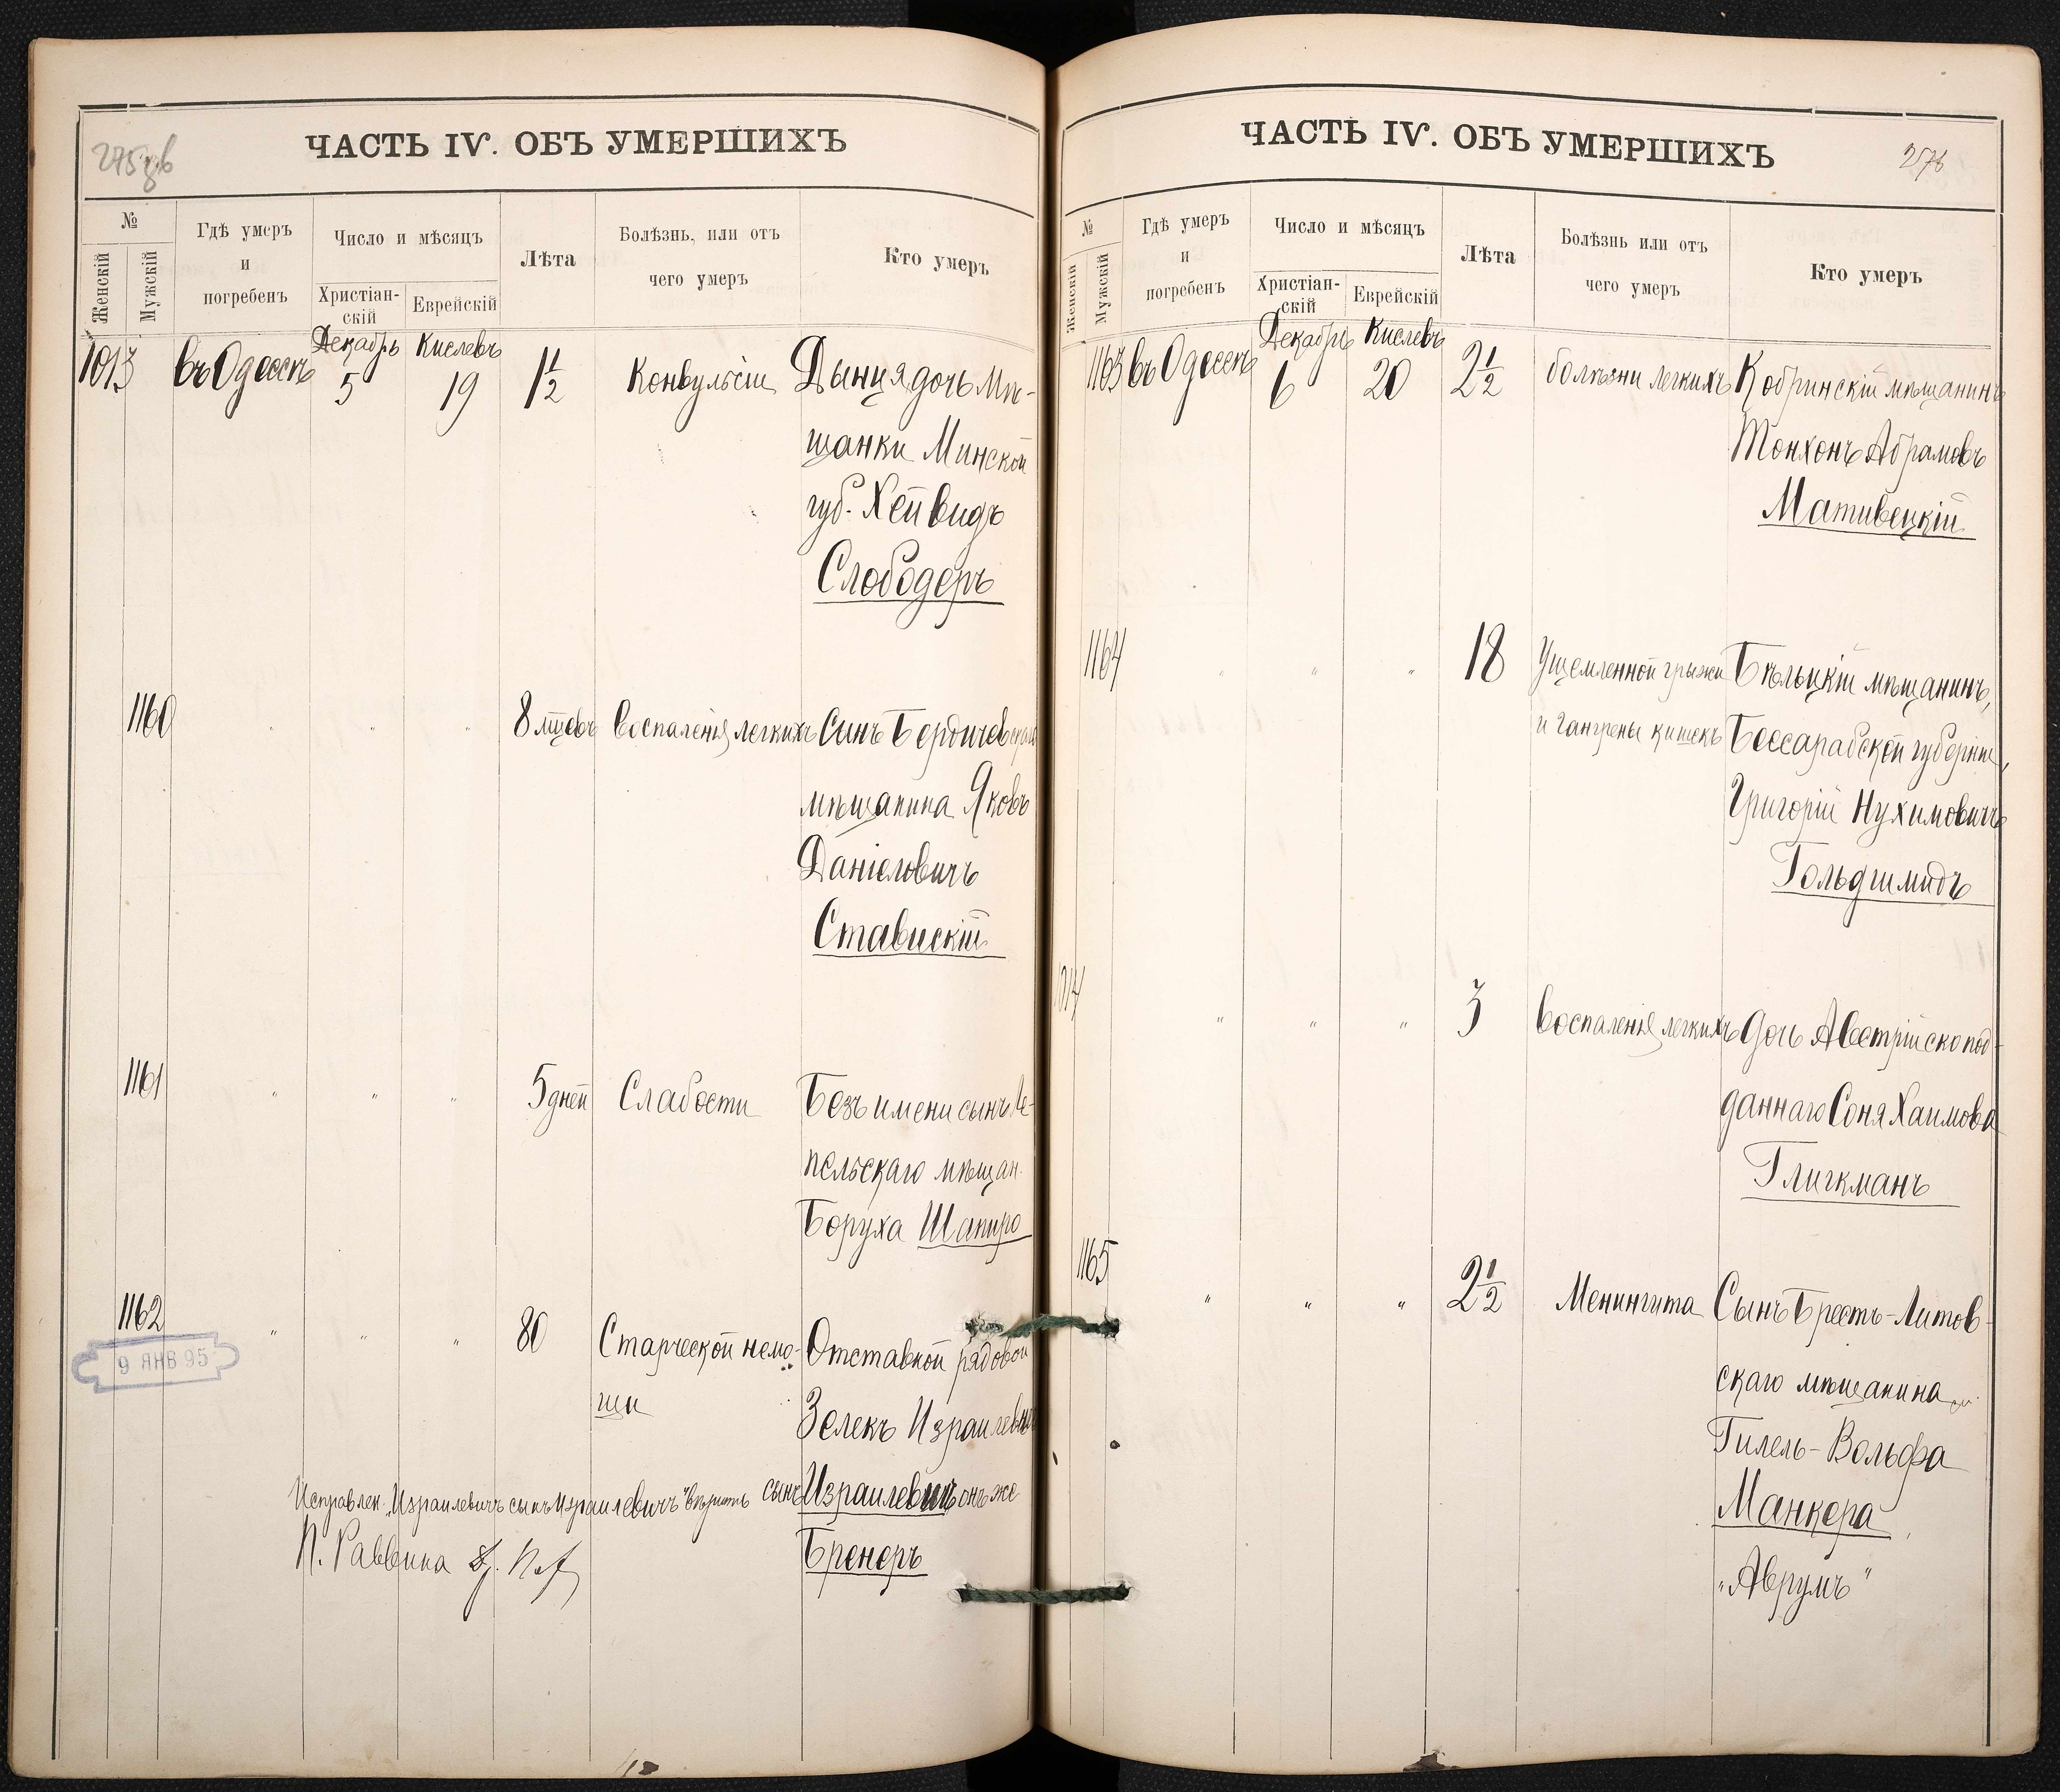 275 об
ЧАСТЬ IV. ОБЪ УМЕРШИХЪ
№
Женскій
Мужскій
Гдѣ умеръ
и
погребенъ
Число и мѣсяцъ
Христіан-
скій
Еврейскій
Лѣта
Болѣзнь, или отъ
чего умеръ
Кто умеръ
Декабрь Кислевъ
1013 въ Одессѣ 5 19 1 1/2 Конвульсіи Дыня дочь мѣ-
щанки Минской
губ. Хейвидъ
Слободеръ
1160 " " " 8 мцевъ Воспаленія легкихъ Сынъ Бердичевскаго
мѣщанина Яковъ
Даніеловичъ
Ставискій
1161 " " " 5 дней Слабости Безъ имени сынъ Ле-
пельскаго мѣщан.
Боруха Шапиро
1162 " " " 80 Старческой немо- Отставной рядовой
щи
9 ЯНВ 95
Зелекъ Израилевичъ
сынъ Израилевичъ онъ же
Бренеръ
Исправлен. „Израилевичъ сынъ Израилевичъ" вѣрить
П. Раввина
276
ЧАСТЬ IV. ОБЪ УМЕРШИХЪ
№
Женскій
Мужскій
Гдѣ умеръ
и
погребенъ
Число и мѣсяцъ
Христіан-
скій
Еврейскій
Лѣта
Болѣзнь или отъ
чего умеръ
Кто умеръ
Декабрь Кислевъ
1163 въ Одессѣ 6 20 2 1/2 болѣзни легкихъ Кобринскій мѣщанинъ
Тонхонъ Абрамовъ
Мативецкій
1164 " " " 18 Ущемленной грыжи Бѣльцкій мѣщанинъ,
и гангрены кишекъ Бессарабской губерніи,
Григорій Нухимовичъ
Гольдшмидъ
1014 " " " 3 Воспаленія легкихъ дочь Австрійско под-
даннаго Соня Хаимова
Гликманъ
1165 " " " 2 1/2 Менингита Сынъ Брестъ-Литов-
скаго мѣщанина
Гилель-Вольфа
Манкера
„Аврумъ"